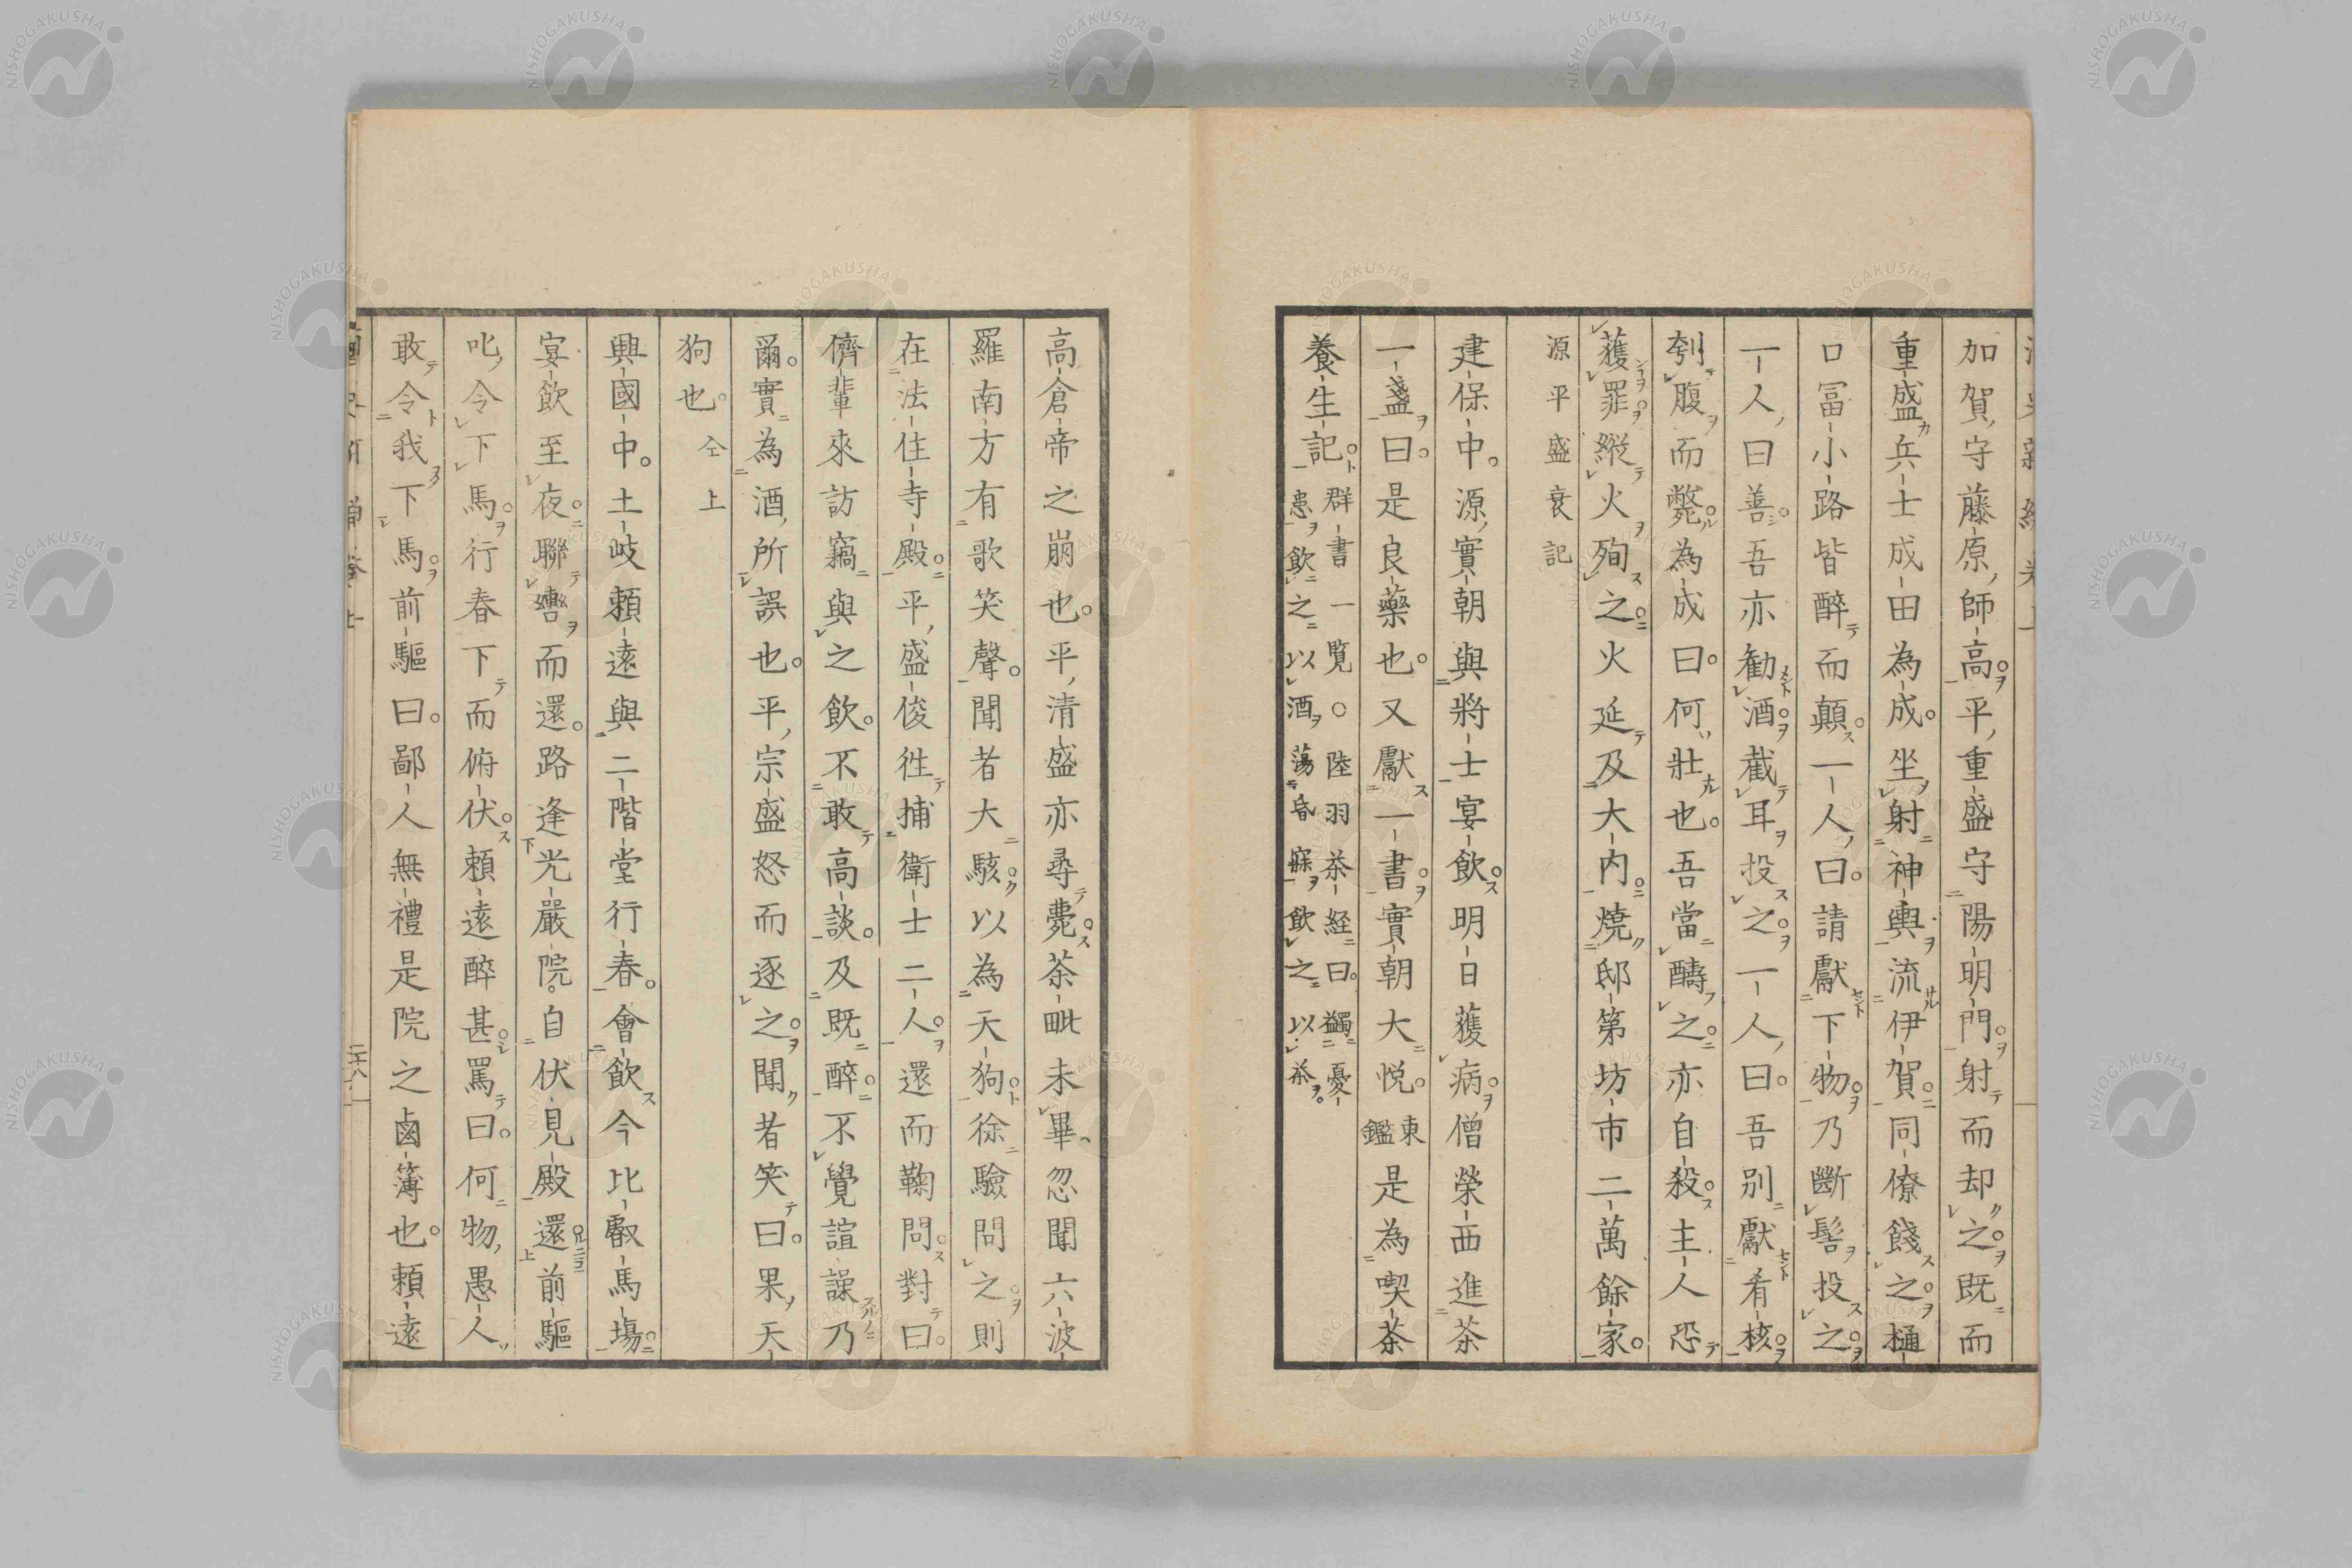 加賀守藤原師高平重盛守陽明門射而却之既而
重盛兵士成田為成坐射神輿流伊賀同僚餞之樋
口冨小路皆醉而顛一人曰請獻下物乃斷髻投之
一人曰善吾亦勧酒截耳投之一人曰吾別獻肴核
刳腹而斃為成曰何壯也吾當醻之亦自殺主人恐
蒦罪縱火殉之火延及大内焼邸第坊市二萬餘家
源平盛衰記
建保中源實朝與將士宴飲明日蒦病僧榮西進茶
一盞曰是良藥也又獻一書實朝大悦東鑑是為喫茶
養生記群書一覧○陸羽茶経曰蠲憂患飲之以酒蕩昏寐飲之以茶
高倉帝之崩也平清盛亦尋薨茶毗未畢忽聞六波
羅南方有歌笑聲聞者大駭以為天狗徐驗問之則
在法住寺殿平盛俊徃捕衛士二人還而鞠問對曰
儕輩來訪竊與之飲不敢高談及既醉不覺諠譟乃
爾實為酒所誤也平宗盛怒而逐之聞者笑曰果天
狗也仝上
興國中土岐頼遠與二階堂行春會飲今比叡馬塲
宴飲至夜聯轡而還路逢光嚴院自伏見殿還前驅
叱令下馬行春下而俯伏頼遠醉甚罵曰何物愚人
敢令我下馬前驅曰鄙人無禮是院之鹵簿也頼遠
NISHOGAKUSHA